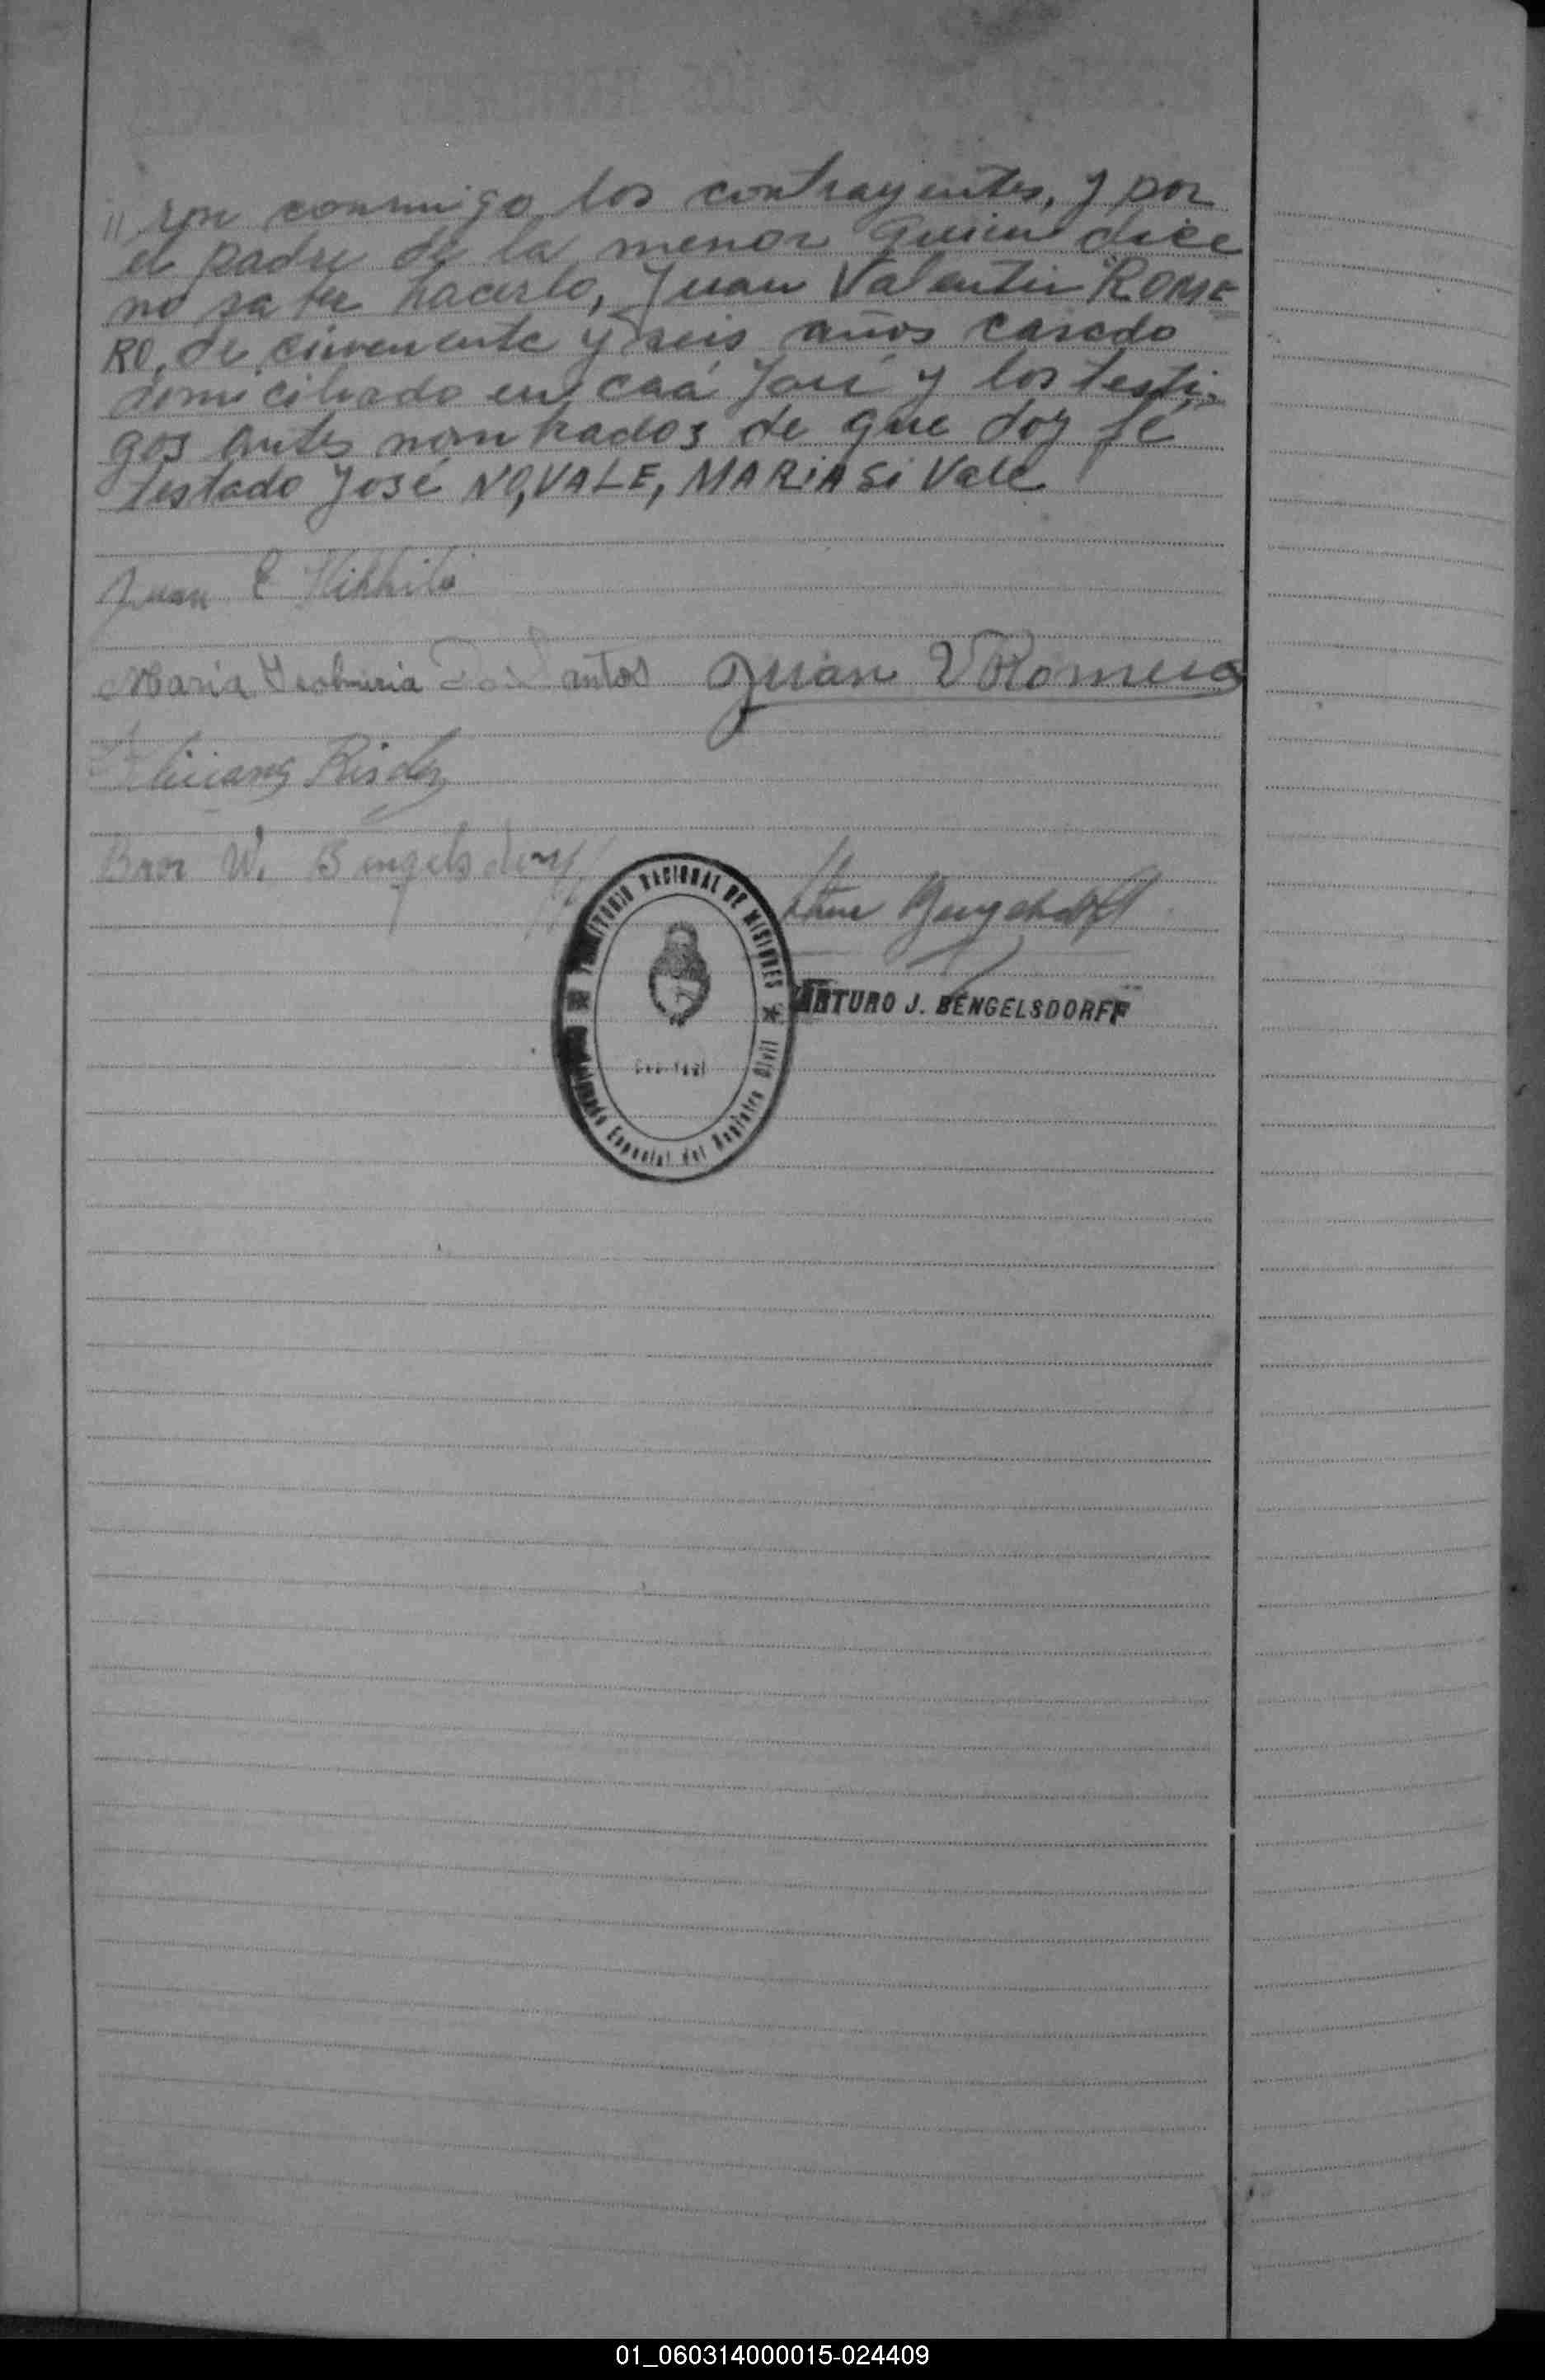 " ron conmigo los contrayentes, y por
el padre de la menor quien dice
no saber hacerlo, Juan Valentin ROME
RO, de cincuenta y seis años casado
domiciliado en Caá Yarí y los testi-
gos antes nombrados de que doy fé
testado José NO, VALE, MARIA Si Vale
Juan E
Maria Dos Santos Juan V Romero
Risder
W. Bengelsdorff
Bengelsdorff
TERRITORIO NACIONAL DE MISIONES
Especial del Registro Civil
ARTURO J. BENGELSDORFF
01_060314000015-024409